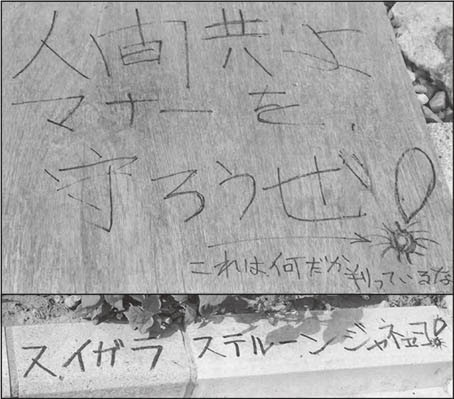 人間共よ
マナーを
守ろうぜ!
これは何だか判っているな
スイガラ ステルーンジャネヱヨ